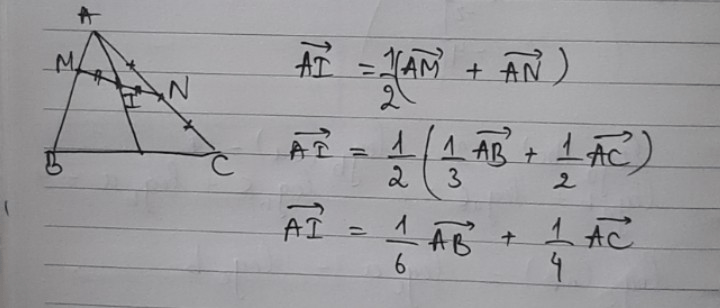 A
M
I
N
B
C
$\overrightarrow{AI} = \frac{1}{2}(\overrightarrow{AM} + \overrightarrow{AN})$
$\overrightarrow{AI} = \frac{1}{2}\left(\frac{1}{3}\overrightarrow{AB} + \frac{1}{2}\overrightarrow{AC}\right)$
$\overrightarrow{AI} = \frac{1}{6}\overrightarrow{AB} + \frac{1}{4}\overrightarrow{AC}$